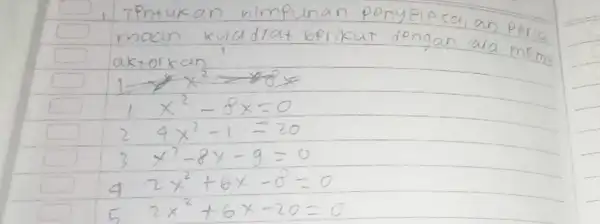 Tentukan himpunan penyelesaian persa
maan kuiddrat berikut dengan ara mem
aktorkan
1 x² - 8x
1 x² - 8x = 0
2 4x² - 1 = 20
3 x² - 8x - 9 = 0
4 2x² + 6x - 8 = 0
5 2x² + 6x - 20 = 0